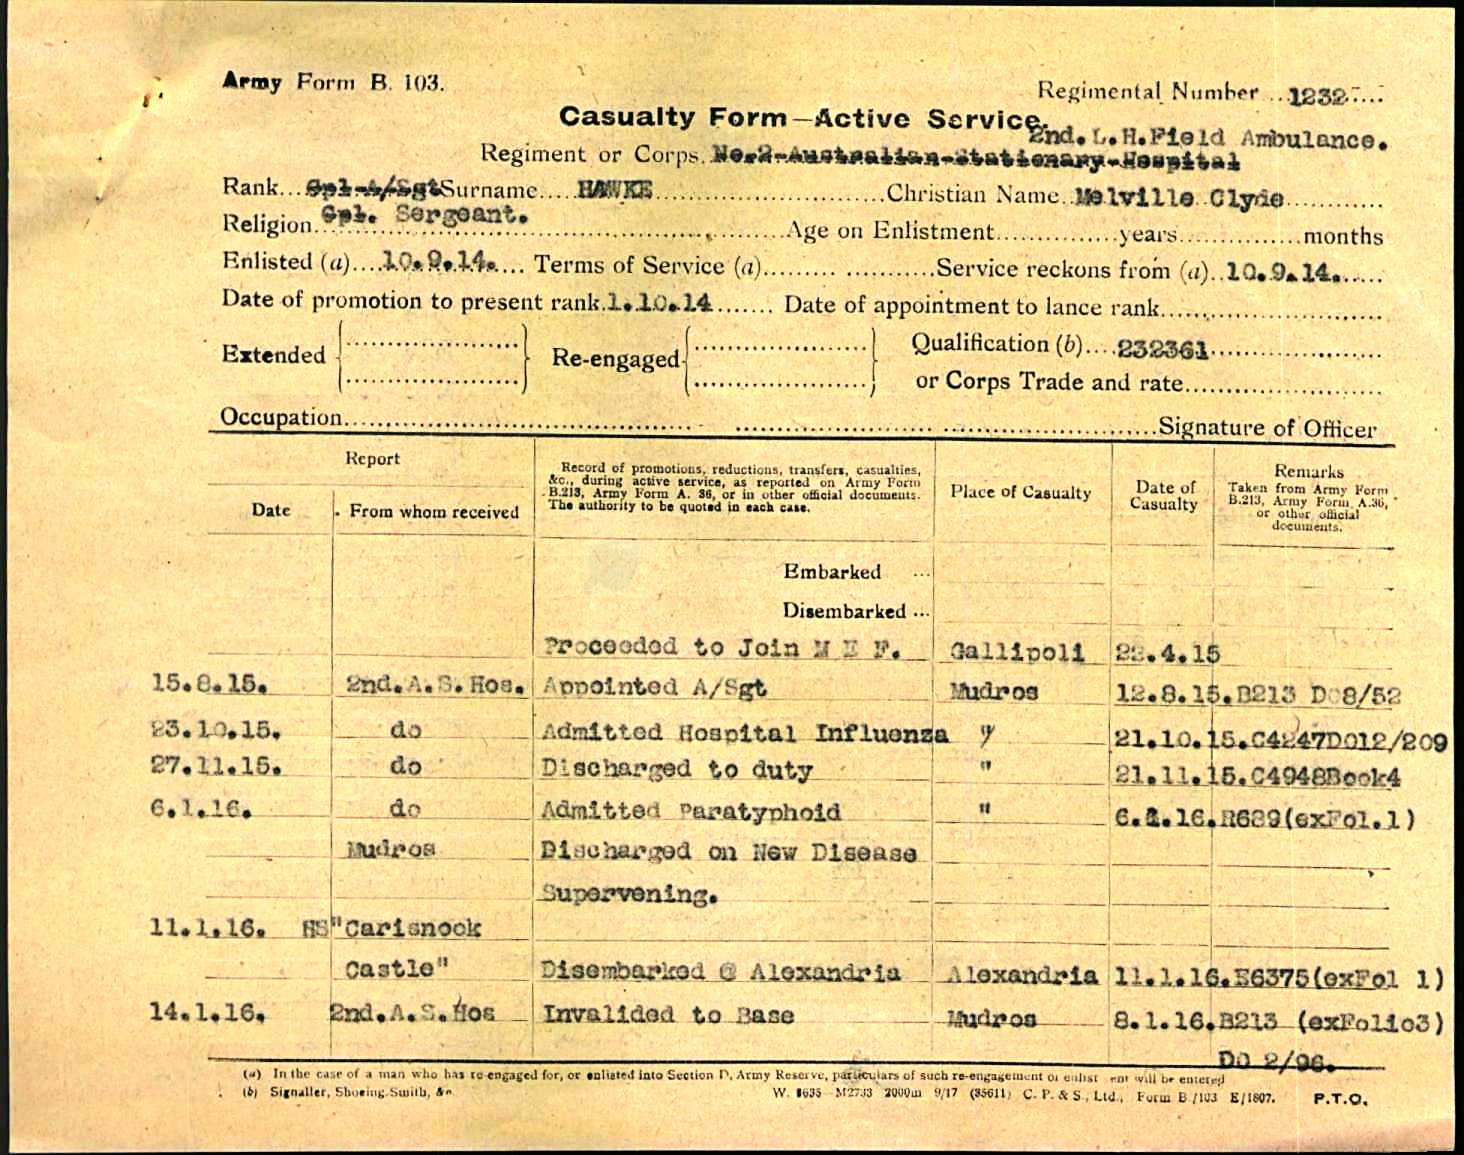 Army Form B. 103.
Regimental Number ...1232....
Casualty Form—Active Service.
2nd.L.H.Field Ambulance.
Regiment or Corps. No.2-Australian-Stationary-Hospital
Rank...Cpl-A/Sgt Surname.....HAWKE..........Christian Name..Melville Clyde............
Cpl. Sergeant.
Religion..........Age on Enlistment...............years...............months
Enlisted (a)....10.9.14..... Terms of Service (a)....................Service reckons from (a)..10.9.14......
Date of promotion to present rank.1.10.14....... Date of appointment to lance rank..........
Extended Re-engaged Qualification (b)....232361..........
or Corps Trade and rate..........
Occupation..........Signature of Officer
Report
Date
From whom received
Record of promotions, reductions, transfers, casualties,
&c., during active service, as reported on Army Form
B.213, Army Form A. 36, or in other official documents.
The authority to be quoted in each case.
Place of Casualty
Date of
Casualty
Remarks
Taken from Army Form
B.213, Army Form A.36,
or other official
documents.
Embarked ...
Disembarked ...
Proceeded to Join M E F. Gallipoli 22.4.15
15.8.15. 2nd.A.S.Hos. Appointed A/Sgt Mudros 12.8.15.B213 DO8/52
23.10.15. do Admitted Hospital Influenza " 21.10.15.C4247DO12/209
27.11.15. do Discharged to duty " 21.11.15.C4948Book4
6.1.16. do Admitted Paratyphoid " 6.1.16.R689(exFol.1)
Mudros Discharged on New Disease
Supervening.
11.1.16. HS"Carisnook
Castle" Disembarked @ Alexandria Alexandria 11.1.16.E6375(exFol 1)
14.1.16. 2nd.A.S.Hos Invalided to Base Mudros 8.1.16.B213 (exFolio3)
DO 2/96.
(a) In the case of a man who has re-engaged for, or enlisted into Section D, Army Reserve, particulars of such re-engagement or enlistment will be entered
(b) Signaller, Shoeing-Smith, &c.
W. 8635—M2733 2000m 9/17 (35611) C. P. & S., Ltd., Form B/103 E/1807. P.T.O.